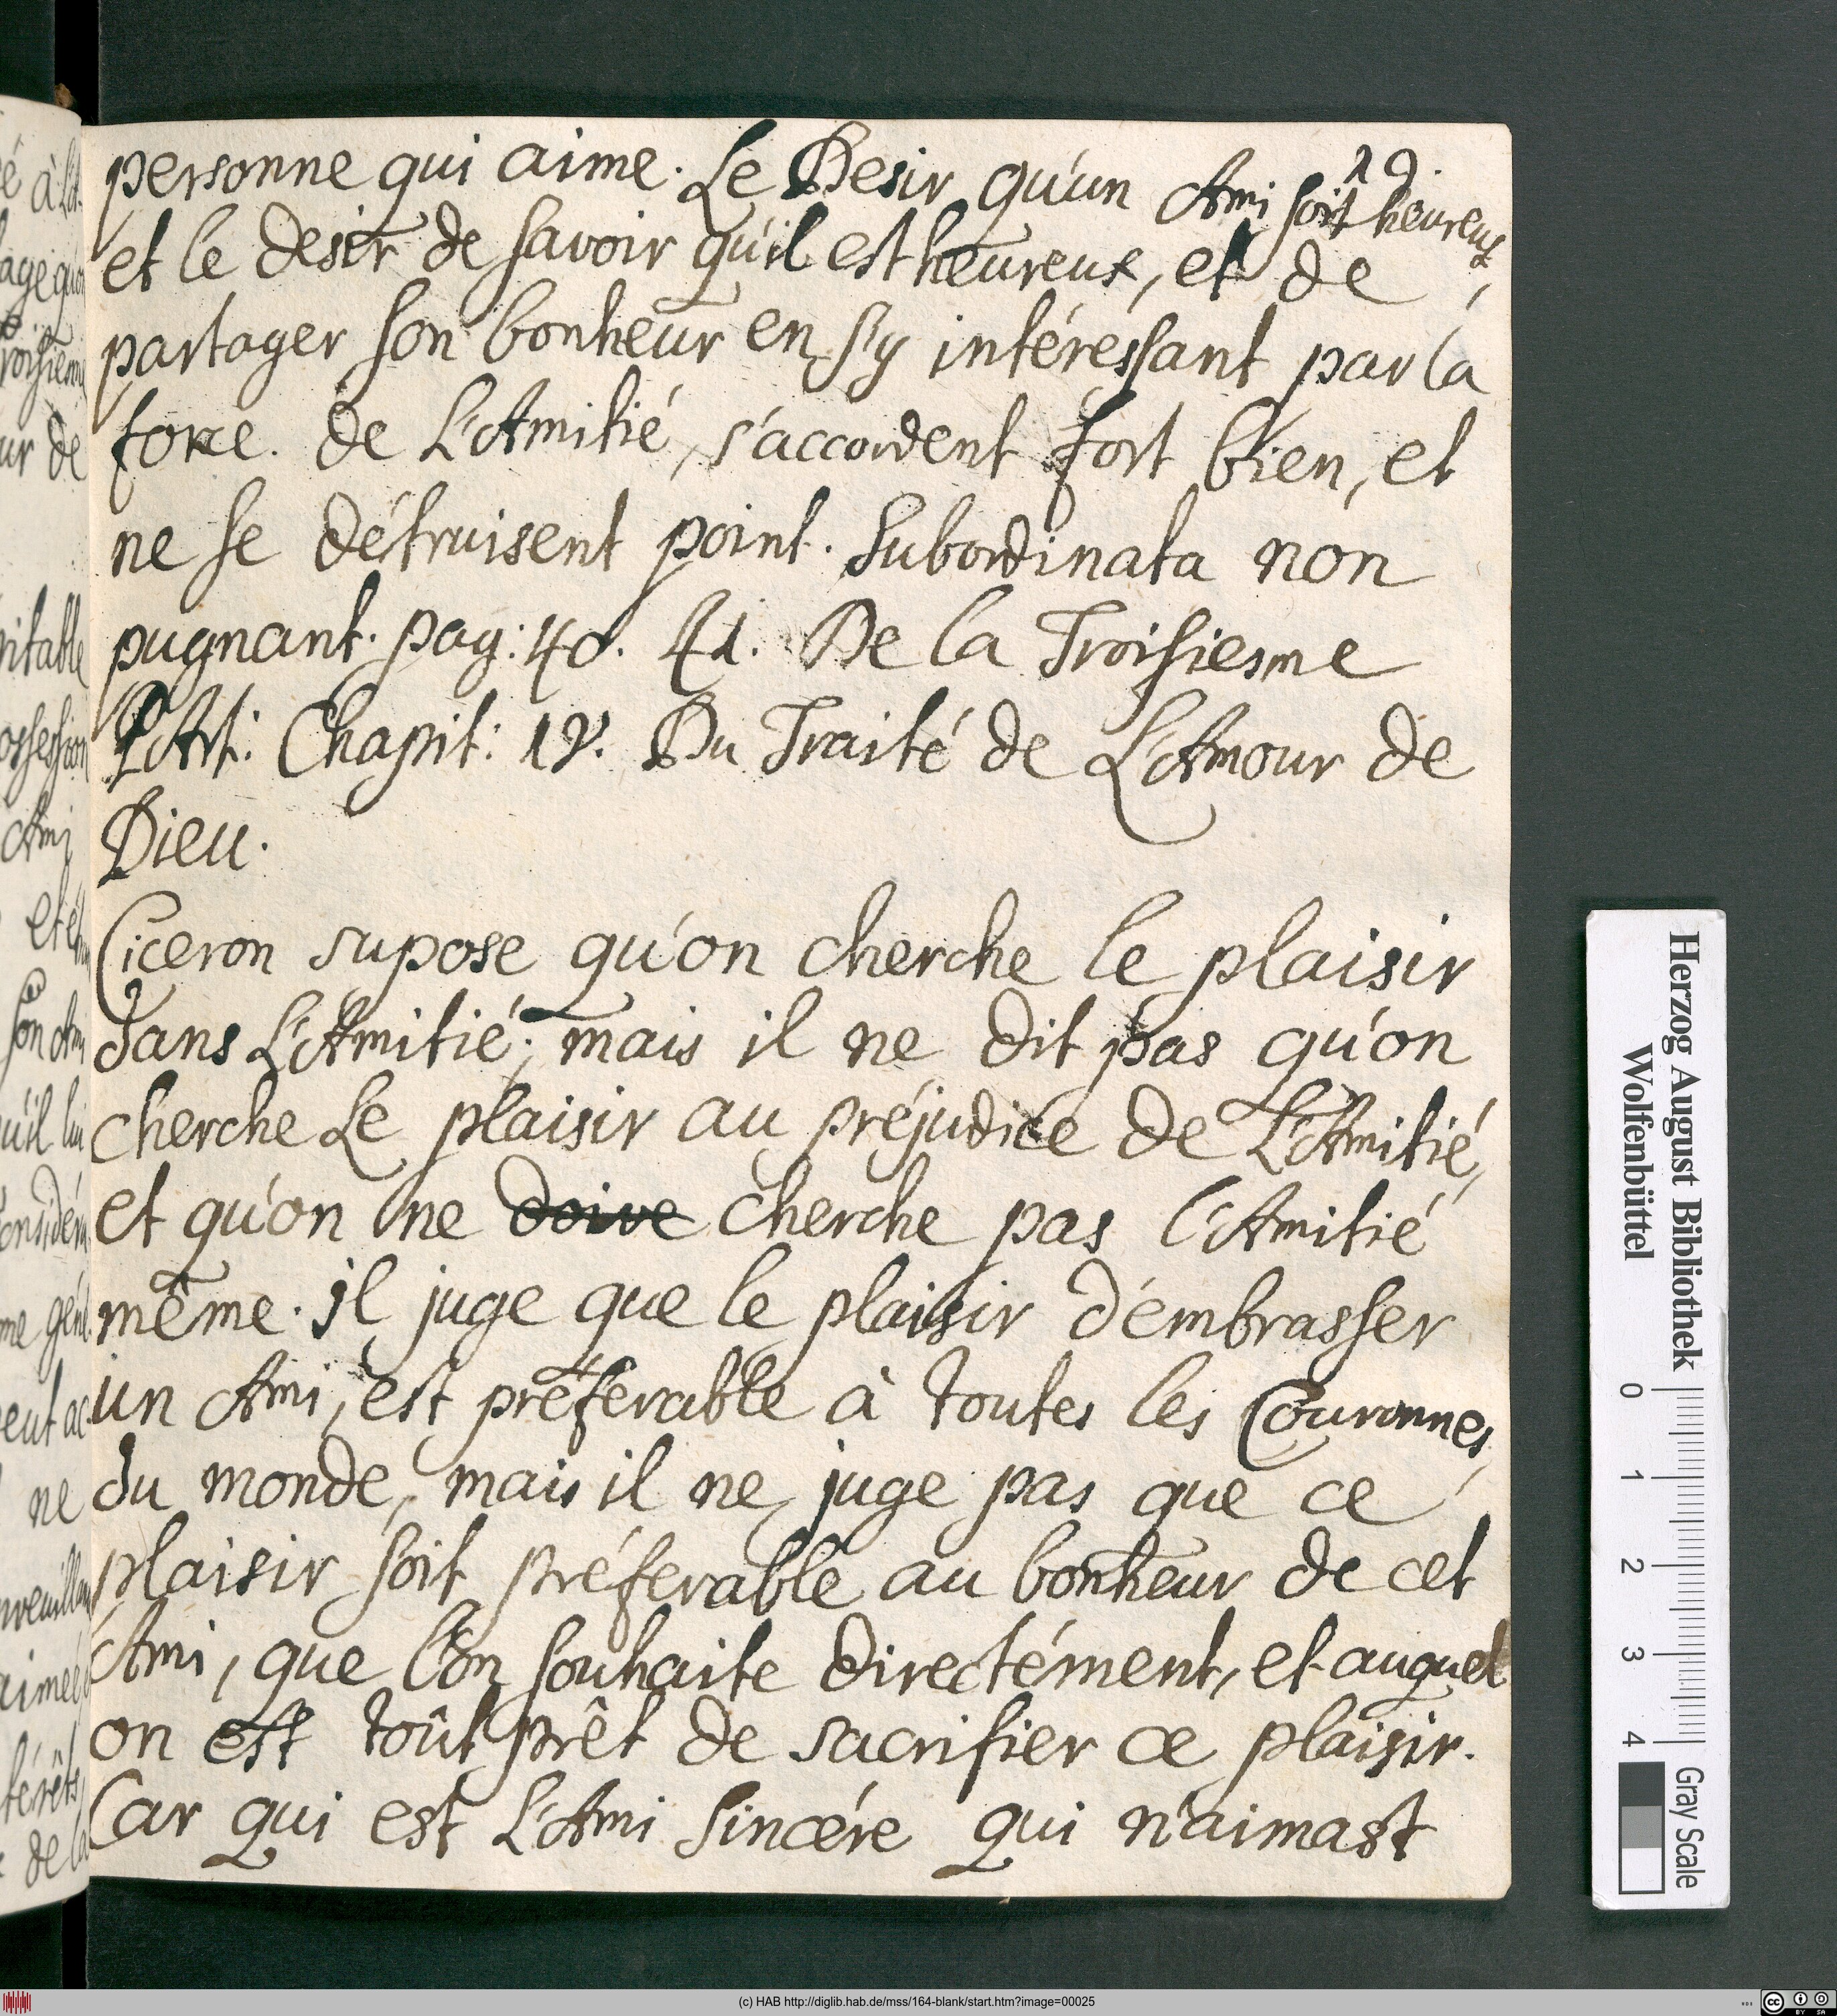 19.
personne qui aime. Le Desir qu'un Ami soit heureux,
et le desir de savoir qu'il est heureux, et de
partager son bonheur en s'y intéressant par la
force. de L'Amitié, s'accordent fort bien, et
ne se détruisent point. Subordinata non
pugnant. pag: 40. 41. De la Troisiesme
Part: Chapit: Du Traité de L'Amour de
Dieu.
Ciceron supose qu'on cherche le plaisir
dans L'Amitié; mais il ne dit pas qu'on
cherche Le plaisir au préjudice de L'Amitié,
et qu'on ne doive cherche pas l'Amitié
même. il juge que le plaisir d'émbrasser
un Ami, est préferable à toutes les Couronnes,
du monde, mais il ne juge pas que ce
plaisir soit préferable au bonheur de cet
Ami, que l'on souhaite directément, et auquel
on est toût prêt de sacrifier ce plaisir.
Car qui est L'Ami sincére qui n'aimast
Herzog August Bibliothek
Wolfenbüttel
0 1 2 3 4 Gray Scale
(c) HAB http://diglib.hab.de/mss/164-blank/start.htm?image=00025